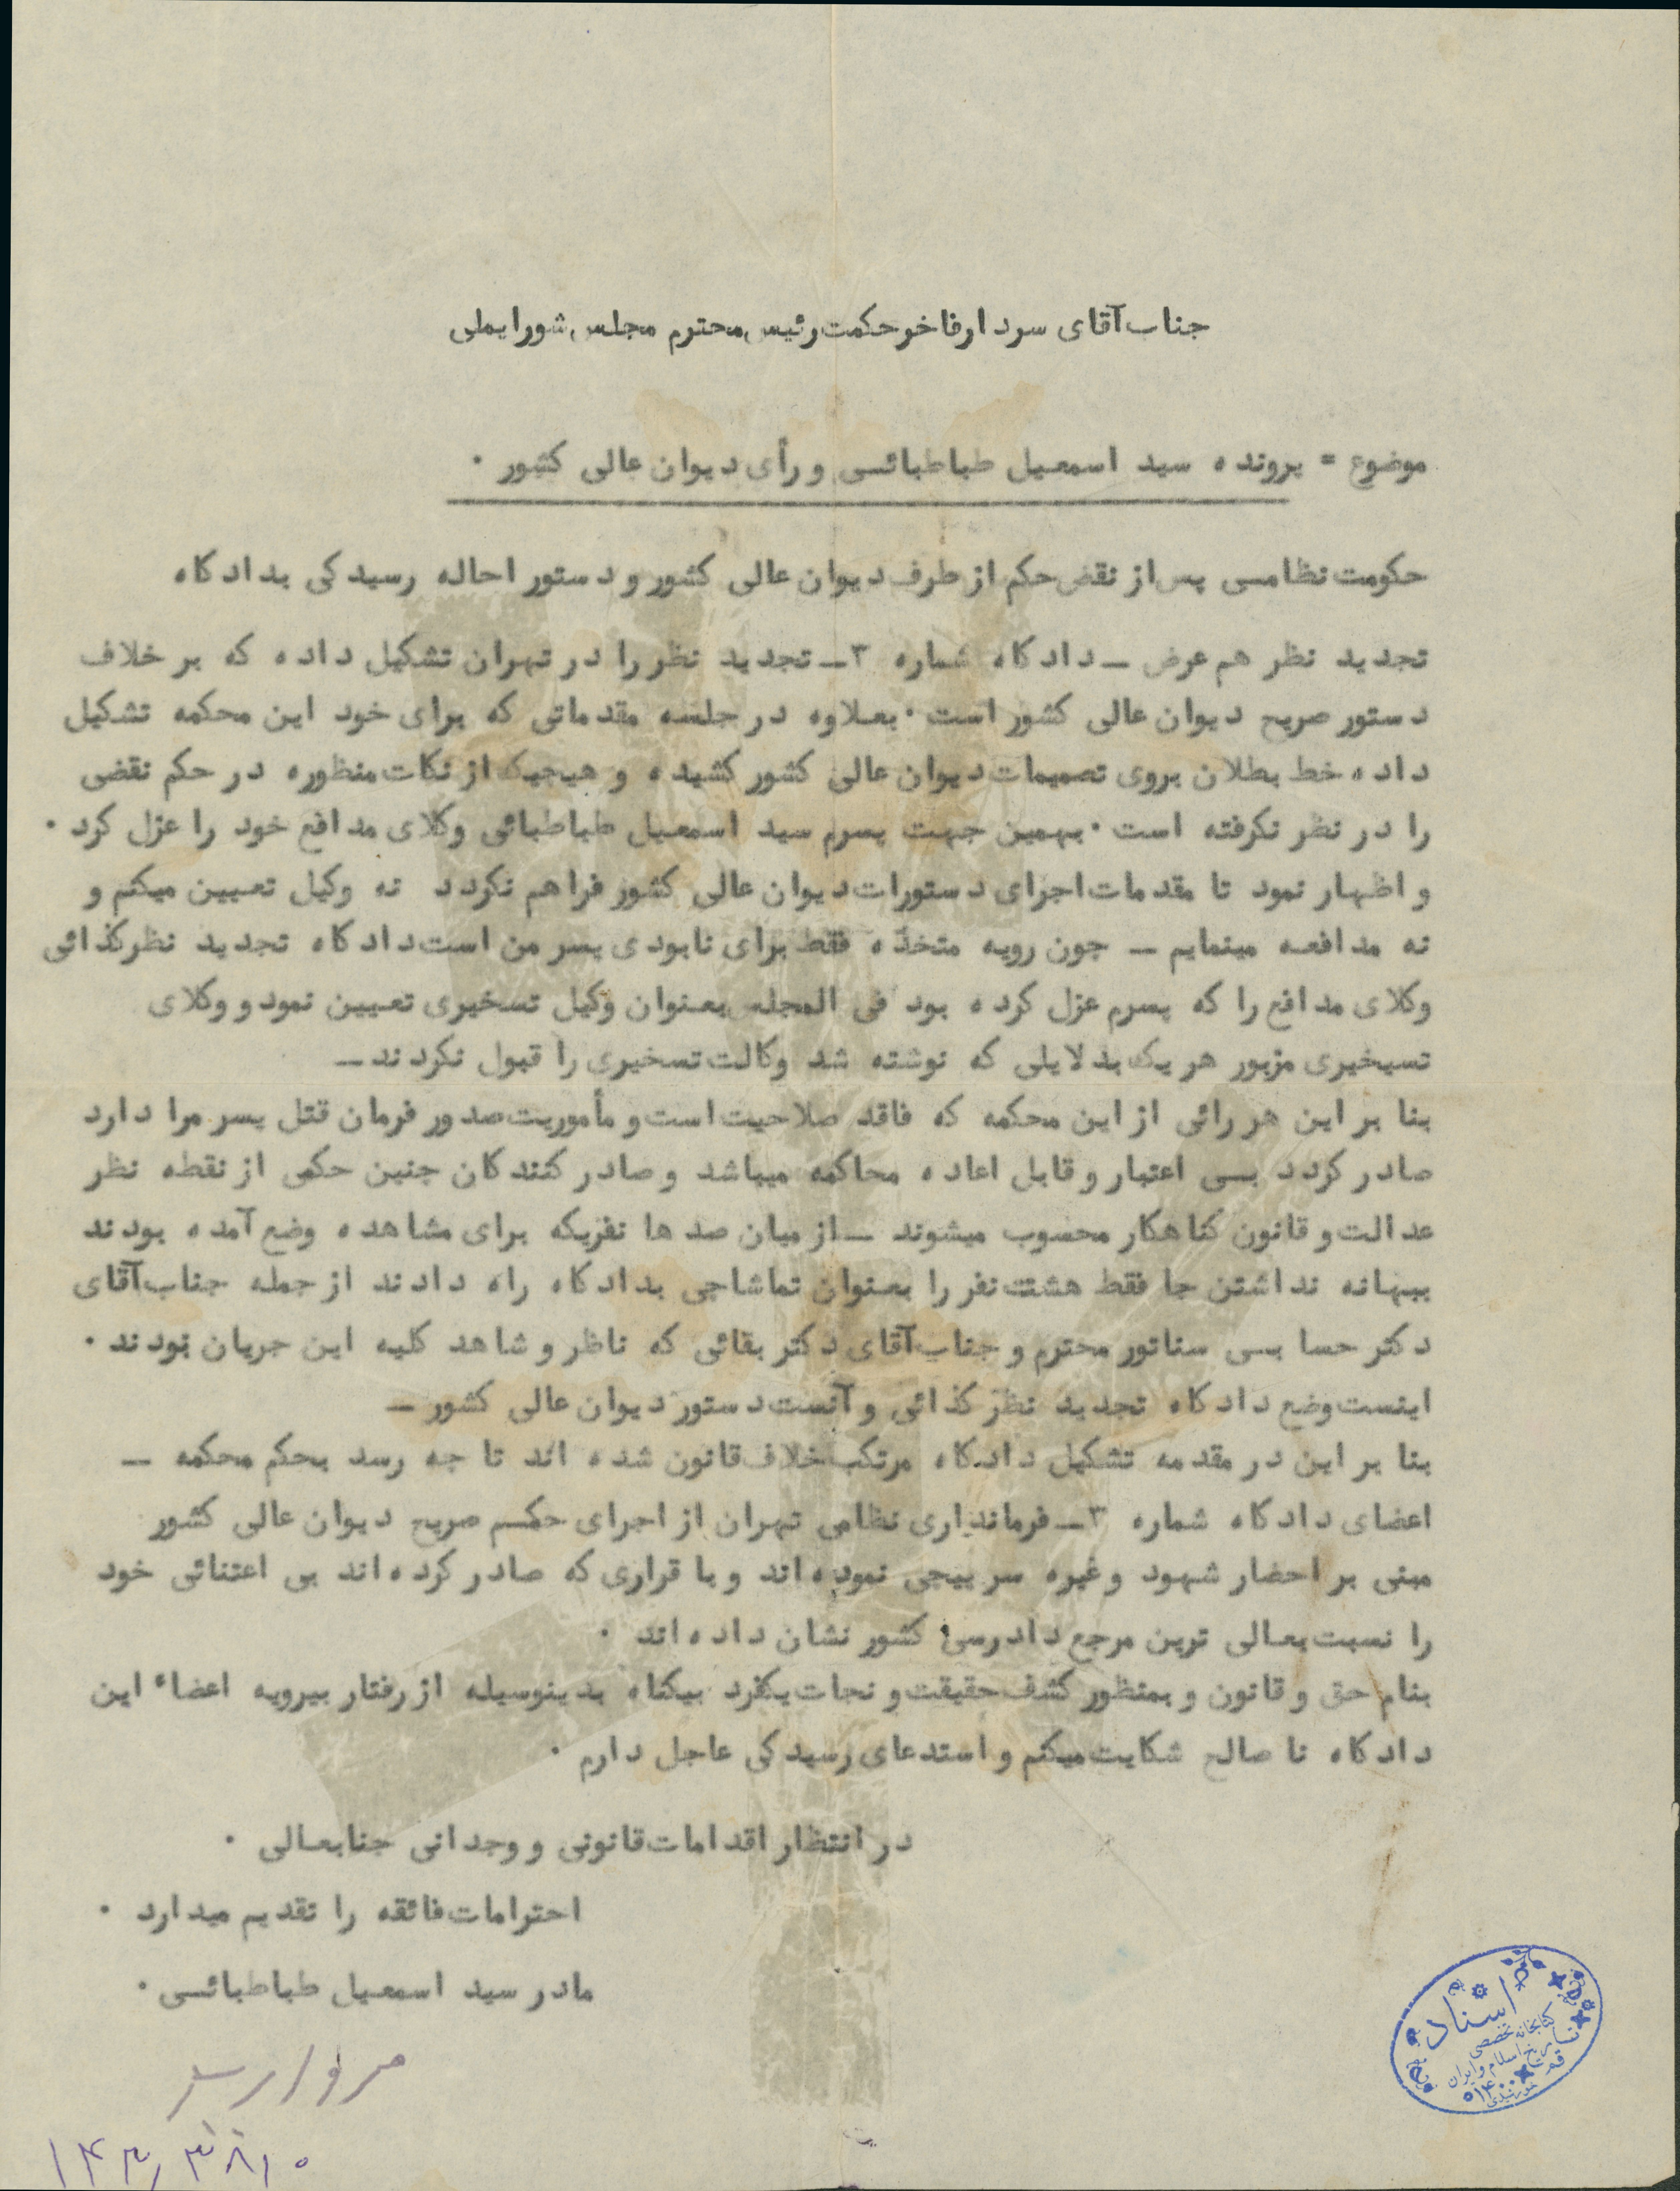 جناب آقای سردار فاخر حکمت رئیس محترم مجلس شورایملی
موضوع = پرونده سید اسمعیل طباطبائی و رأی دیوان عالی کشور ۰
حکومت نظامی پس از نقض حکم از طرف دیوان عالی کشور و دستور احاله رسیدکی بدادکاه
تجدید نظر هم عرض ـ دادکاه شماره ۳ـ تجدید نظر را در تهران تشکیل داده که بر خلاف
دستور صریح دیوان عالی کشور است ۰ بعلاوه در جلسه مقدماتی که برای خود این محکمه تشکیل
داده خط بطلان بروی تصمیمات دیوان عالی کشور کشیده و هیجیک از نکات منظوره در حکم نقضی
را در نظر نکرفته است ۰ بهمین جهت پسرم سید اسمعیل طباطبائی وکلای مدافع خود را عزل کرد ۰
و اظهار نمود تا مقدمات اجرای دستورات دیوان عالی کشور فراهم نکردد نه وکیل تعیین میکنم و
نه مدافعه مینمایم ـ جون رویه متخذه فقط برای نابودی پسر من است دادکاه تجدید نظر کذائی
وکلای مدافع را که پسرم عزل کرده بود فی المجلس بعنوان وکیل تسخیری تعیین نمود و وکلای
تسیخیری مزبور هر یک بدلایلی که نوشته شد وکالت تسخیری را قبول نکردند ـ
بنا بر این هر رائی از این محکمه که فاقد صلاحیت است و مأموریت صدور فرمان قتل پسر مرا دارد
صادر کردد بی اعتبار و قابل اعاده محاکمه میباشد و صادر کنندکان جنین حکمی از نقطه نظر
عدالت و قانون کناهکار محسوب میشوند ـ از میان صدها نفریکه برای مشاهده وضع آمده بودند
ببهانه نداشتن جا فقط هشت نفر را بعنوان تماشاجی بدادکاه راه دادند از جمله جناب آقای
دکتر حسابی سناتور محترم و جناب آقای دکتر بقائی که ناظر و شاهد کلیه این جریان بودند ۰
اینست وضع دادکاه تجدید نظر کذائی و آنست دستور دیوان عالی کشور ـ
بنا بر این در مقدمه تشکیل دادکاه مرتکب خلاف قانون شده اند تا جه رسد بحکم محکمه ـ
اعضای دادکاه شماره ۳ـ فرمانداری نظامی تهران از اجرای حکم صریح دیوان عالی کشور
مبنی بر احضار شهود و غیره سر بیجی نموده اند و با قراری که صادر کرده اند بی اعتنائی خود
را نسبت بعالی ترین مرجع دادرسی کشور نشان داده اند ۰
بنام حق و قانون و بمنظور کشف حقیقت و نجات یکفرد بیکناه بدینوسیله از رفتار بیرویه اعضاء این
دادکاه نا صالح شکایت میکنم و استدعای رسیدکی عاجل دارم ۰
در انتظار اقدامات قانونی و وجدانی جنابعالی ۰
احترامات فائقه را تقدیم میدارد ۰
مادر سید اسمعیل طباطبائی ۰
اسناد
کتابخانه تخصصی
تاریخ اسلام و ایران
قم